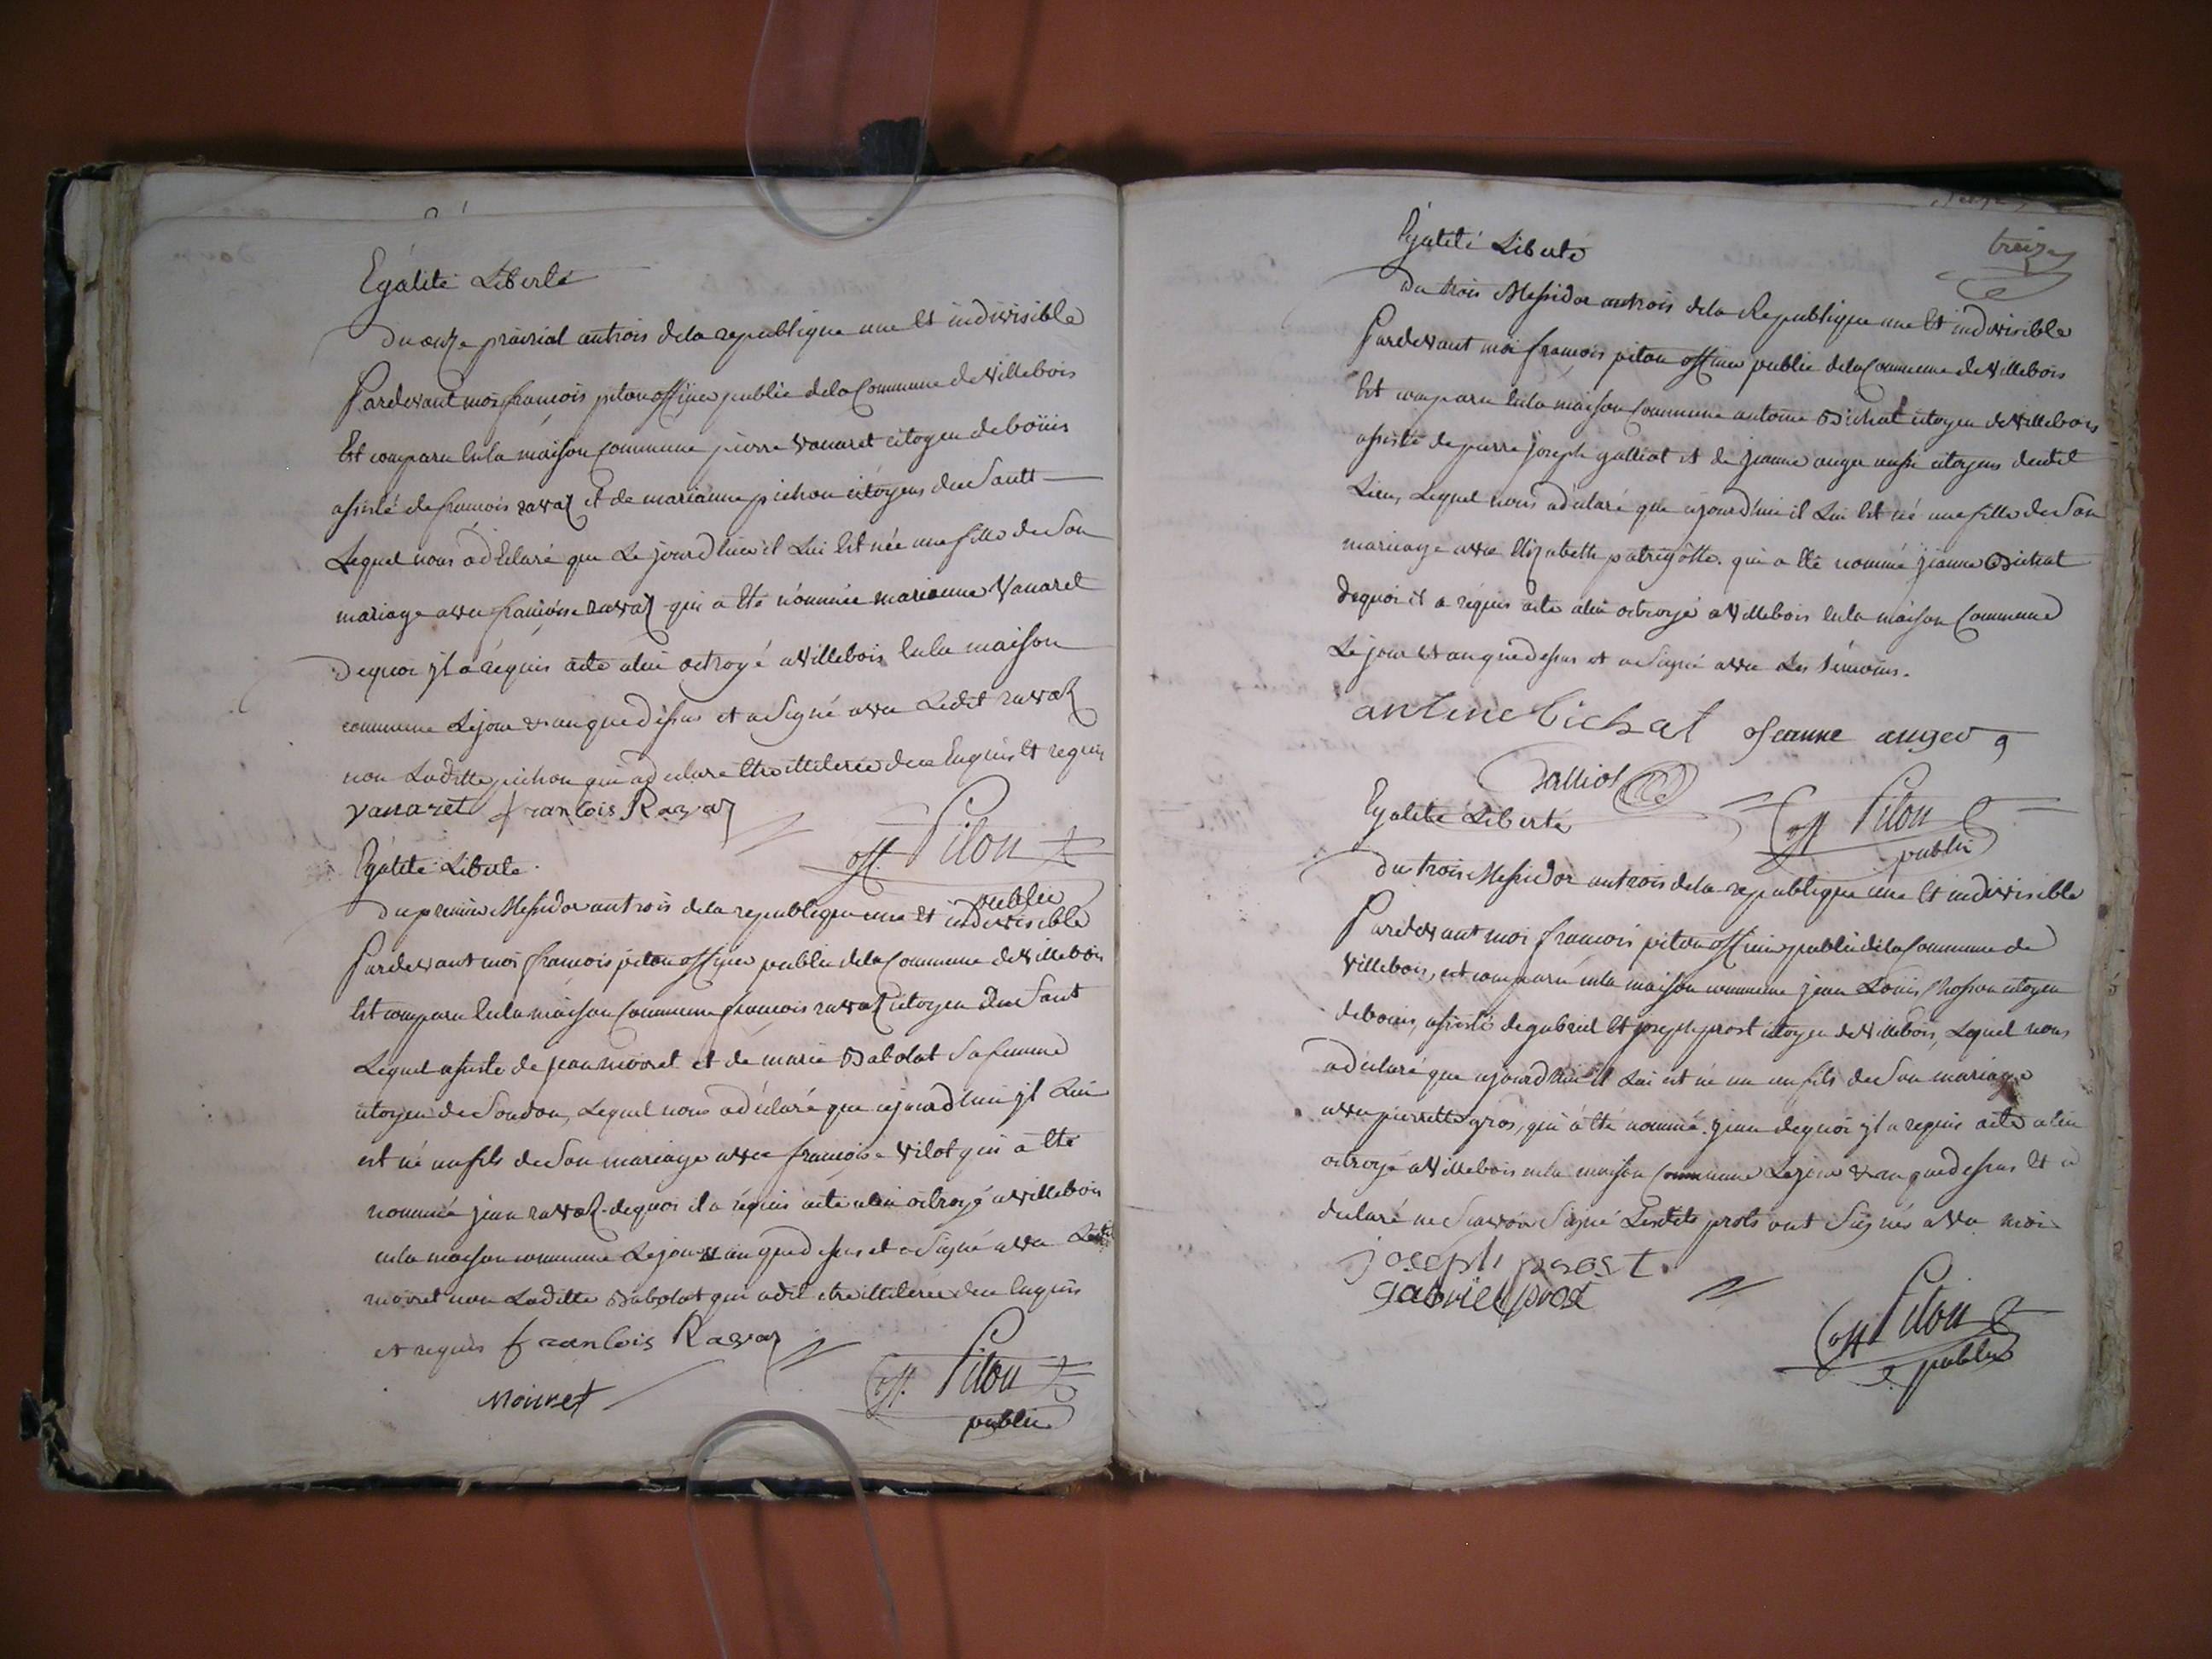 Egalité Liberté
Du onze prairial an trois de la republique une Et indivisible
Pardevant moi françois piton officier public de la Commune de Villebois
Est comparu En la maison Commune pierre Vanaret citoyen de bouis
assisté de françois ravaz et de marianne pichon citoyens du Sault
Lequel nous a déclaré que Le jourd'huy il Lui Est née une fille de Son
mariage avec françoise ravaz qui a Eté nommée marianne Vanaret
Dequoi jl a réquis acte a lui octroyé a Villebois En la maison
commune Le jour & an que dessus et a Signé avec Ledit ravaz
non Laditte pichon qui a declaré Etre illiterée de ce Enquis Et requis
vanaret francois Ravaz
Piton
off. public
Egalité Liberté
Du premier Messidor an trois de la republique une Et indivisible
Pardevant moi françois piton officier public de la Commune de Villebois
Est comparu En la maison Commune françois ravaz citoyen du Sault
Lequel assisté de jean moiret et de marie Babolat Sa femme
citoyen de Soudon, Lequel nous a déclaré que cejourd'hui jl Lui
est né un fils de Son mariage avec françoise Vilot qui a Eté
nommé jean ravaz dequoi il a réquis acte a lui octroyé a Villebois
en la maison commune Le jour & an que dessus et a Signé avec Ledit
moiret non Laditte Babolat qui a dit etre illiterée de ce Enquis
et requis francois Ravaz
Moirret
Piton
off. public
treize
Egalité Liberté
Du trois Messidor an trois de la Republique une Et indivisible
Pardevant moi françois piton officier public de la Commune de Villebois
Est comparu En la maison Commune antoine Bichat citoyen de Villebois
assisté de pierre joseph galliot et de jeanne anger aussi citoyens dudit
Lieu, Lequel nous a déclaré que cejourd'hui il Lui Est né une fille de Son
mariage avec Elizabeth patrigotte qui a Eté nommé jeanne Bichat
dequoi il a réquis acte a lui octroyé a Villebois En la maison Commune
Le jour & an que dessus et a Signé avec Les témoins.
antine bichat Jeanne anger
Galliot
Piton
off public
Egalité Liberté
Du trois Messidor an trois de la republique une Et indivisible
Pardevant moi françois piton officier public de la Commune de
Villebois, est comparu en la maison commune jean Louis citoyen
de bouis, assisté de gabriel Et joseph prost citoyen de Villebois, Lequel nous
a déclaré que cejourd'hui il Lui est né un un fils de Son mariage
avec pierrette gros, qui a été nommé jean dequoi jl a requis acte a lui
octroyé a Villebois en la maison Commune Le jour & an que dessus Et a
declaré ne Scavoir Signé Lesdits prots ont Signés avec moi
joseph prost
gabriel prost
Piton
off public